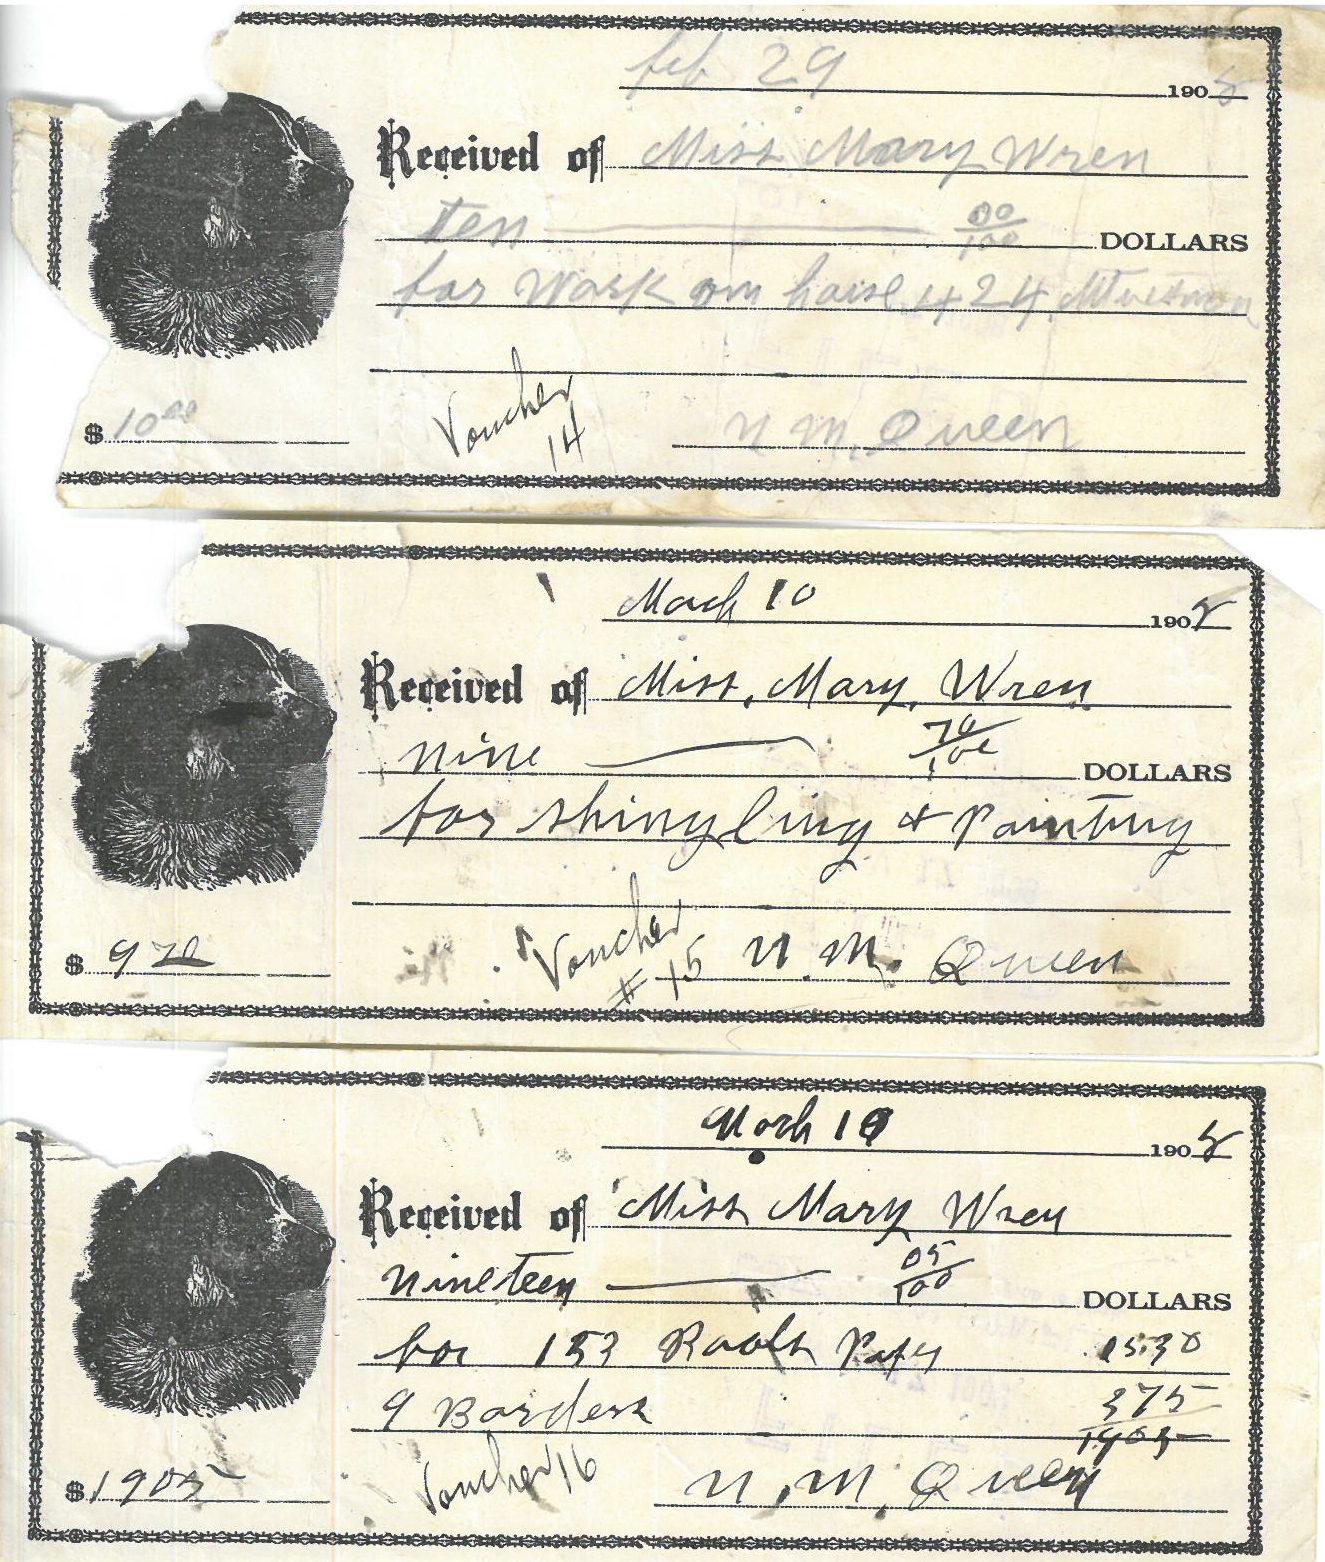 feb 29 1908
Received of Miss Mary Wren
ten 00/100 DOLLARS
for Work on house 424
$ 10 00 Voucher 14 N M. Queen
March 10 1908
Received of Miss, Mary, Wren
nine 70/100 DOLLARS
for shingling & Painting
$ 9 70 Voucher # 15 N. M. Queen
March 10 1908
Received of Miss Mary Wren
nineteen 05/100 DOLLARS
for 153 Roolls Paper 15.30
9 Borders 375
1905
$ 1905 Voucher 16 N. M. Queen